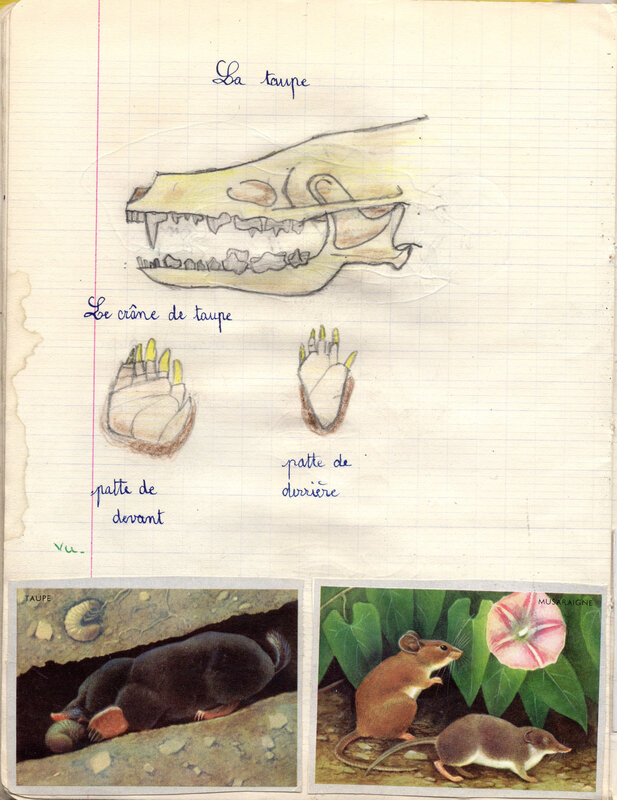 La taupe
Le crâne de taupe
patte de
devant
patte de
derrière
vu.
TAUPE
MUSARAIGNE